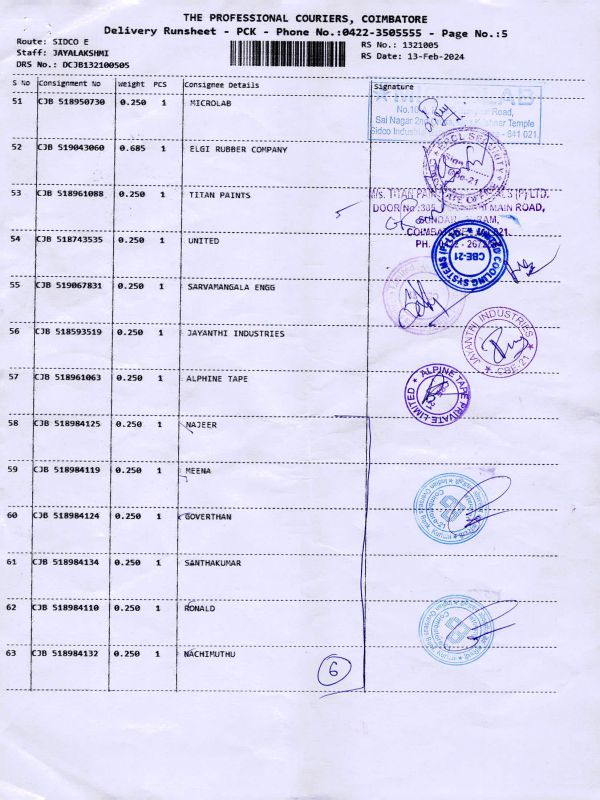 THE PROFESSIONAL COURIERS, COIMBATORE
Delivery Runsheet - PCK - Phone No.:0422-3505555 - Page No.:5
Route: SIDCO E
RS No.: 1321005
Staff: JAYALAKSHMI
RS Date: 13-Feb-2024
DRS No.: DCJB132100505
S No Consignment No Weight PCS Consignee Details Signature
51 CJB 518950730 0.250 1 MICROLAB
No.10
Road,
Sai Nagar 2n
Temple
Sidco Indust
- 641 021.
52 CJB 519043060 0.685 1 ELGI RUBBER COMPANY
53 CJB 518961088 0.250 1 TITAN PAINTS
M/s. TITAN PAIN (P) LTD.
DOOR No :305 MAIN ROAD,
54 CJB 518743535 0.250 1 UNITED
UNITED COOLING SYSTEMS (P) LTD
CBE-21
55 CJB 519067831 0.250 1 SARVAMANGALA ENGG
56 CJB 518593519 0.250 1 JAYANTHI INDUSTRIES
JAYANTHI INDUSTRIES
CBE-21
57 CJB 518961063 0.250 1 ALPHINE TAPE
ALPINE TAPE PRIVATE LIMITED
58 CJB 518984125 0.250 1 NAJEER
59 CJB 518984119 0.250 1 MEENA
Indian Overseas Bank
Coimbatore-21
60 CJB 518984124 0.250 1 GOVERTHAN
61 CJB 518984134 0.250 1 SANTHAKUMAR
62 CJB 518984110 0.250 1 RONALD
63 CJB 518984132 0.250 1 NACHIMUTHU
6